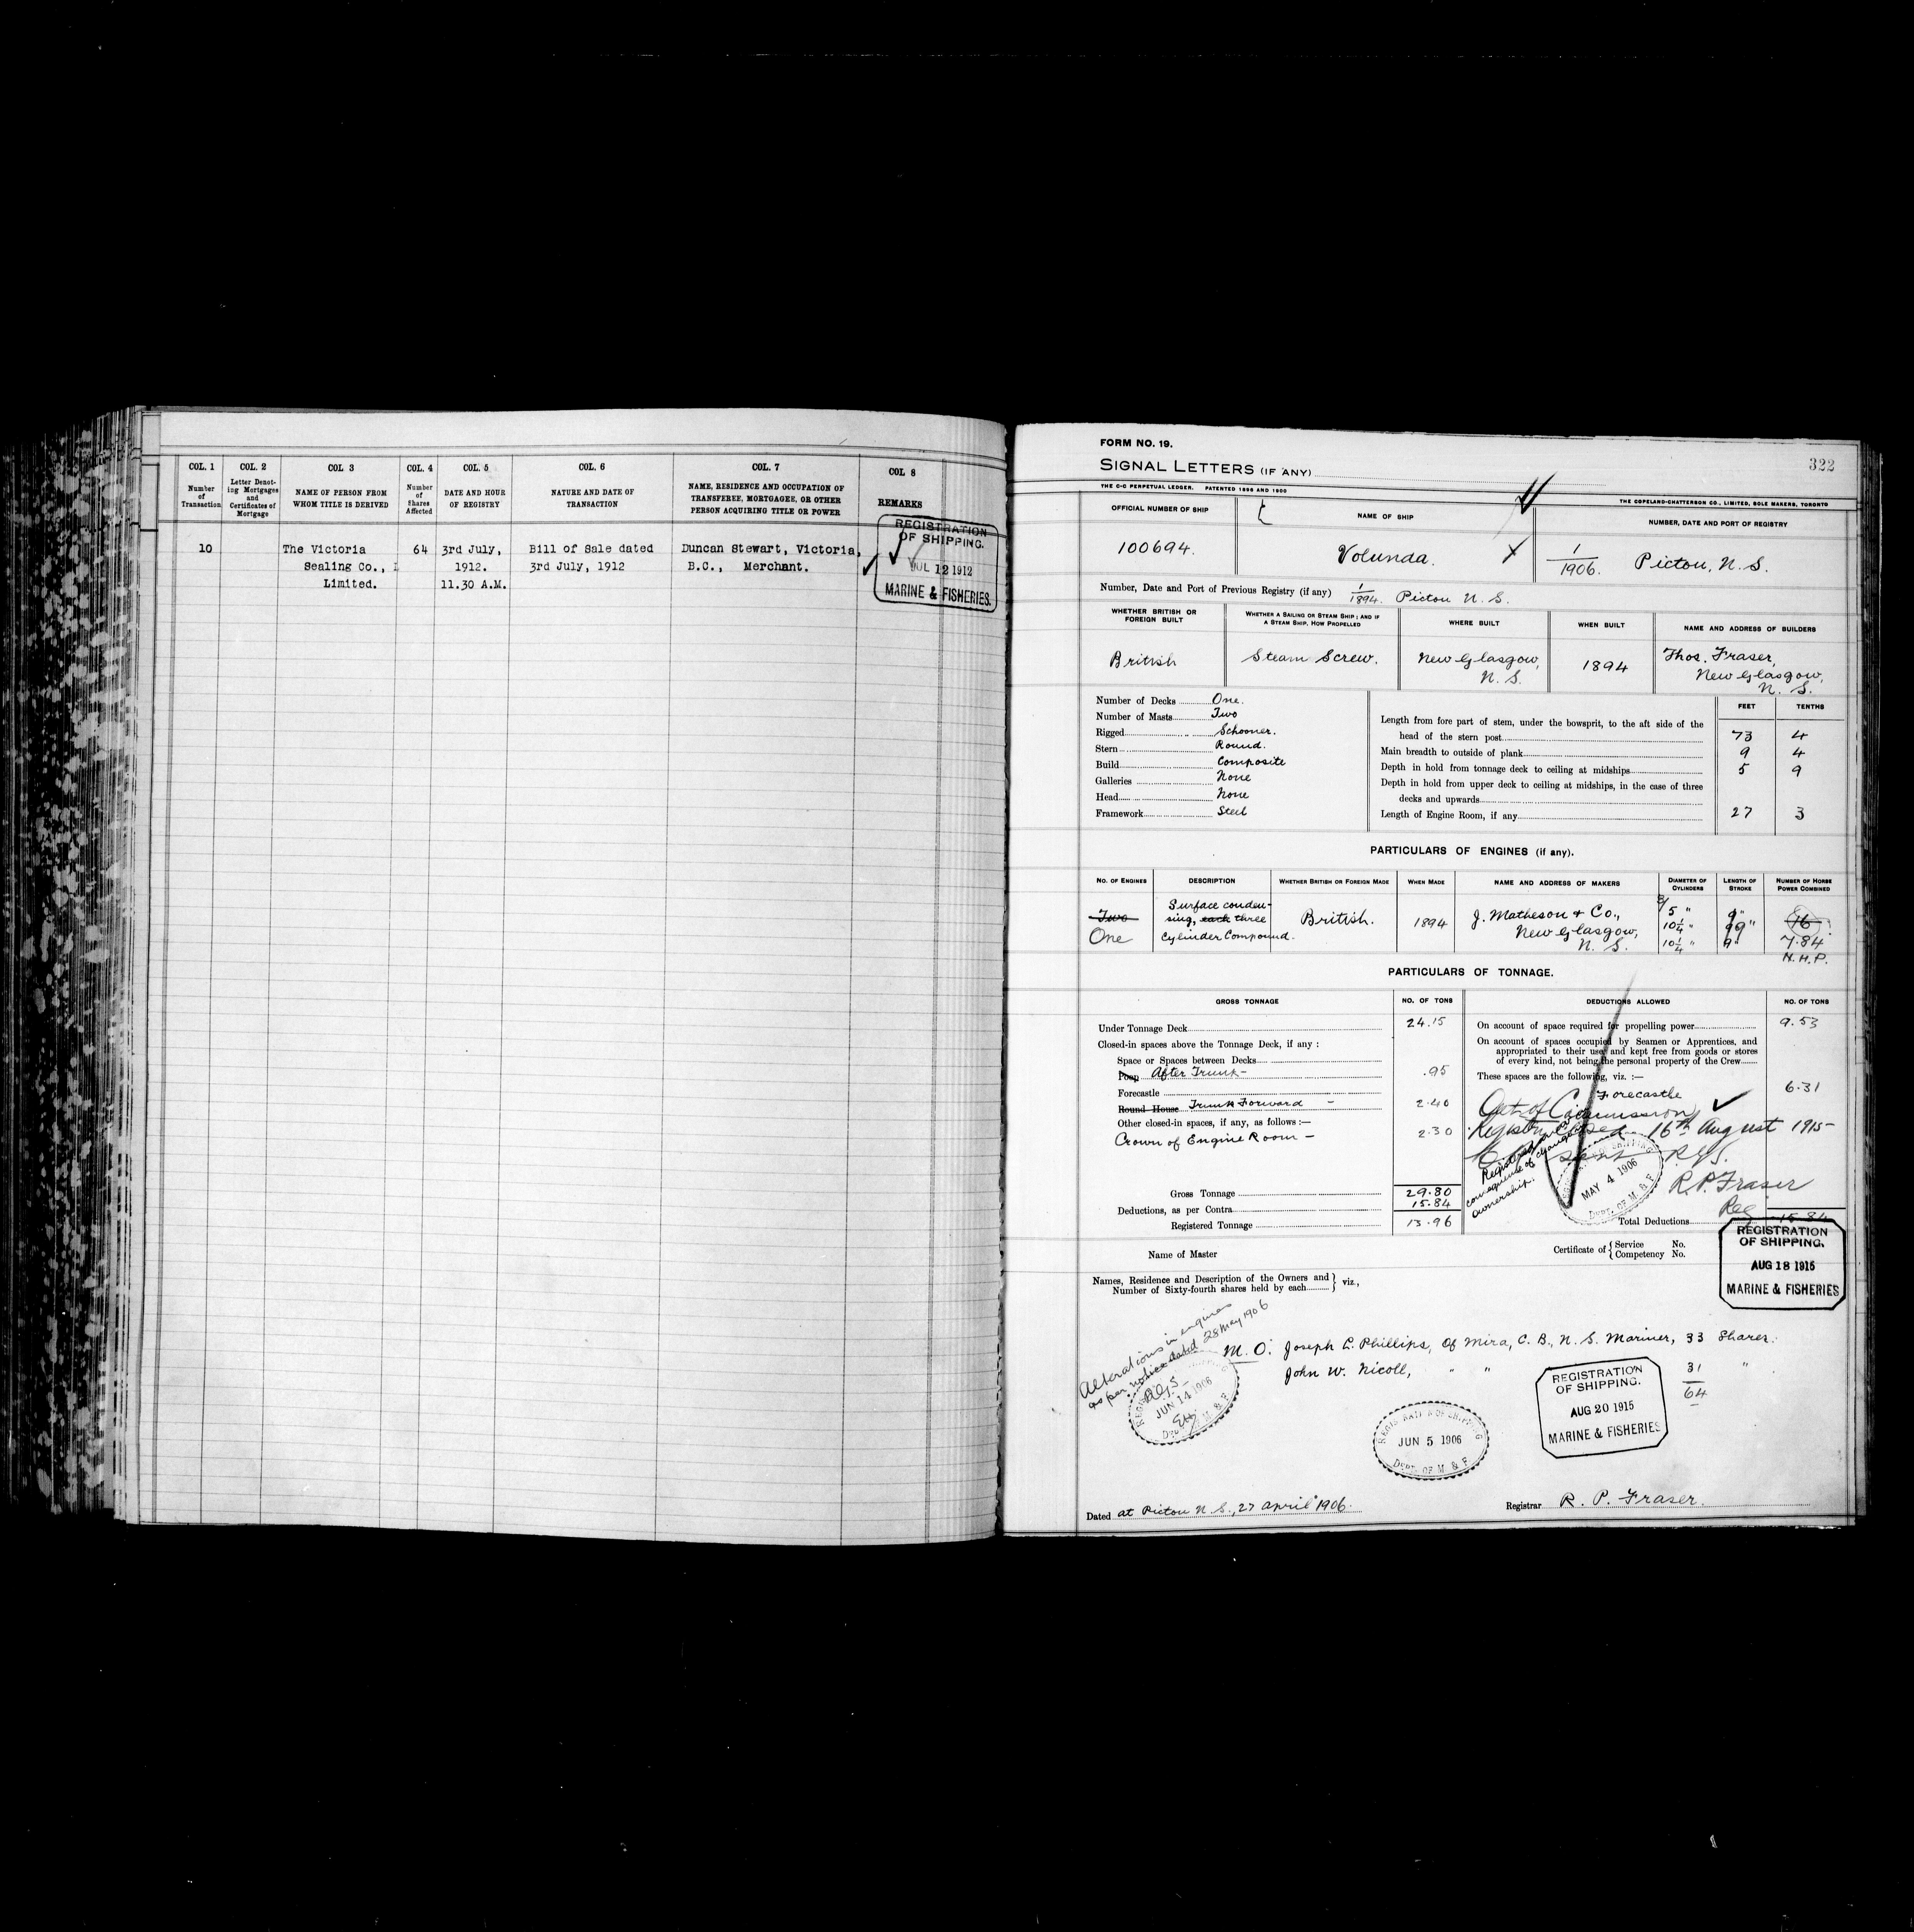 COL. 1 COL. 2 COL 3 COL. 4 COL. 5 COL. 6 COL. 7 COL 8
Number of Transaction
Letter Denoting Mortgages and Certificates of Mortgage
NAME OF PERSON FROM WHOM TITLE IS DERIVED
Number of Shares Affected
DATE AND HOUR OF REGISTRY
NATURE AND DATE OF TRANSACTION
NAME, RESIDENCE AND OCCUPATION OF TRANSFEREE, MORTGAGEE, OR OTHER PERSON ACQUIRING TITLE OR POWER
REMARKS
10 The Victoria 64 3rd July, Bill of Sale dated Duncan Stewart, Victoria,
Sealing Co., 1912. 3rd July, 1912 B.C., Merchant.
Limited. 11.30 A.M.
REGISTRATION
OF SHIPPING.
JUL 12 1912
MARINE & FISHERIES.
FORM NO. 19.
322
SIGNAL LETTERS (IF ANY)
THE C-C PERPETUAL LEDGER. PATENTED 1896 AND 1900
THE COPELAND-CHATTERSON CO., LIMITED, SOLE MAKERS, TORONTO
OFFICIAL NUMBER OF SHIP NAME OF SHIP NUMBER, DATE AND PORT OF REGISTRY
100694. Volunda. X 1/1906. Pictou, N.S.
Number, Date and Port of Previous Registry (if any) 1/1894. Pictou N.S.
WHETHER BRITISH OR FOREIGN BUILT
WHETHER A SAILING OR STEAM SHIP; AND IF A STEAM SHIP, HOW PROPELLED
WHERE BUILT
WHEN BUILT
NAME AND ADDRESS OF BUILDERS
British Steam Screw. New Glasgow, N.S. 1894 Thos. Fraser, New Glasgow, N.S.
Number of Decks One.
Number of Masts Two
Rigged Schooner.
Stern Round.
Build Composite
Galleries None
Head None
Framework Steel
FEET TENTHS
Length from fore part of stem, under the bowsprit, to the aft side of the
head of the stern post 73 4
Main breadth to outside of plank 9 4
Depth in hold from tonnage deck to ceiling at midships 5 9
Depth in hold from upper deck to ceiling at midships, in the case of three
decks and upwards
Length of Engine Room, if any 27 3
PARTICULARS OF ENGINES (if any).
NO. OF ENGINES DESCRIPTION WHETHER BRITISH OR FOREIGN MADE WHEN MADE NAME AND ADDRESS OF MAKERS DIAMETER OF CYLINDERS LENGTH OF STROKE NUMBER OF HORSE POWER COMBINED
Two Surface conden- 5" 9" 16
sing, each three British. 1894 J. Matheson & Co., 10 1/4" 9"
One Cylinder Compound. New Glasgow, N.S. 10 1/4" 9" 7.84
N.H.P.
PARTICULARS OF TONNAGE.
GROSS TONNAGE NO. OF TONS DEDUCTIONS ALLOWED NO. OF TONS
Under Tonnage Deck 24.15
Closed-in spaces above the Tonnage Deck, if any :
Space or Spaces between Decks
Poop After Trunk- .95
Forecastle
Round House Trunk Forward - 2.40
Other closed-in spaces, if any, as follows :—
Crown of Engine Room - 2.30
Gross Tonnage 29.80
Deductions, as per Contra 15.84
Registered Tonnage 13.96
On account of space required for propelling power 9.53
On account of spaces occupied by Seamen or Apprentices, and
appropriated to their use, and kept free from goods or stores
of every kind, not being the personal property of the Crew
These spaces are the following, viz. :—
Forecastle 6.31
Out of Commission
Register closed 16th August 1915-
R.P. Fraser
Reg
Registered anew
consequence of change of
ownership.
MAY 4 1906
DEPT. OF M. & F.
Total Deductions 15.84
REGISTRATION
OF SHIPPING.
AUG 18 1915
MARINE & FISHERIES
Name of Master
Certificate of { Service No.
Competency No.
Names, Residence and Description of the Owners and
Number of Sixty-fourth shares held by each } viz.,
Alterations in engines
as per notice dated 28 May 1906
JUN 14 1906
M.O. Joseph L. Phillips, Of Mira, C.B., N.S. Mariner, 33 Shares.
John W. Nicoll, " " 31 "
64
REGISTRATION
OF SHIPPING.
AUG 20 1915
MARINE & FISHERIES
REGISTRATION OF SHIPPING
JUN 5 1906
DEPT. OF M. & F.
Dated at Pictou N.S., 27 April 1906.
Registrar R. P. Fraser.